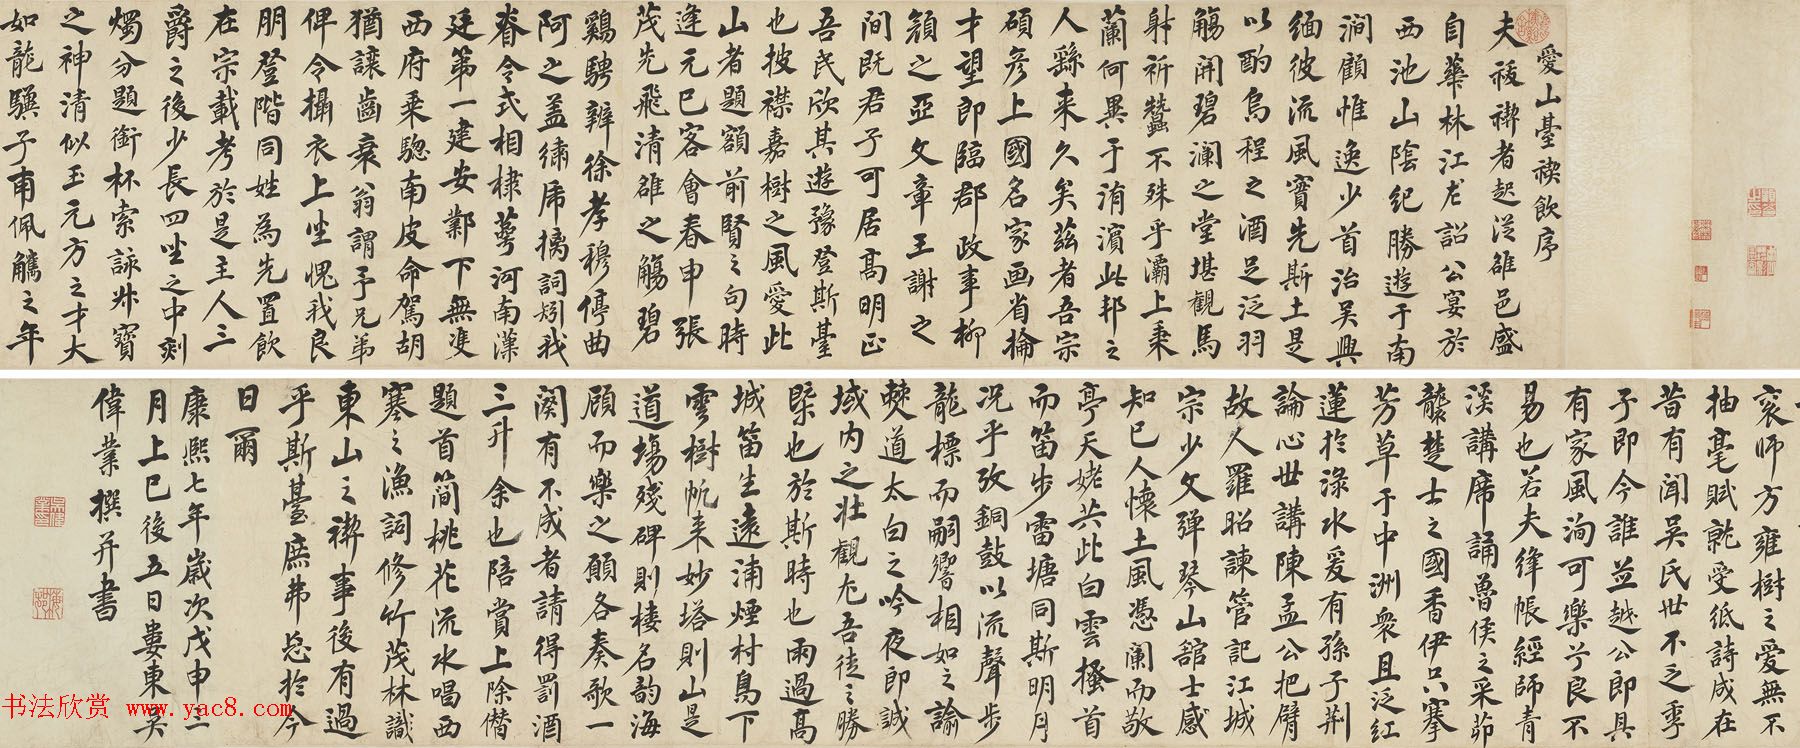 愛山臺禊飲序
夫祓禊者起從雒邑盛
自華林江左詔公宴於
西池山陰紀勝遊于南
澗顧惟逸少首治吳興
緬彼流風實先斯土是
以酌烏程之酒足泛羽
觴開碧瀾之堂堪觀馬
射祈蠶不殊乎灞上秉
蘭何異于洧濱此邦之
人繇来久矣茲者吾宗
碩彥上國名家画省掄
才望郎臨郡政事柳
頠之亞文章王謝之
間既君子可居高明正
吾民欣其遊豫登斯臺
也披襟嘉樹之風愛此
山者題額前賢之句時
逢元巳客會春申張
茂先飛清雒之觴碧
鷄騁辨徐孝穆停曲
阿之盖繡席摛詞矧我
眷令式相棣萼河南漢
廷第一建安鄴下無雙
西府乘驄南皮命駕胡
猶讓齒衰翁謂予兄弟
俾令攝衣上坐愧我良
朋登階同姓為先置飲
在宗載考於是主人三
爵之後少長四坐之中刻
燭分題銜杯索詠叔寶
之神清似玉元方之才大
如龍驥子甫佩觿之年
袞師方雍樹之愛無不
抽毫賦就受紙詩成在
昔有聞吳氏世不乏季
子即今誰並越公即具
有家風洵可樂兮良不
易也若夫絳帳經師青
溪講席誦魯侯之采茆
襲楚士之國香伊只搴
芳草于中洲衆且泛紅
蓮於淥水爰有孫子荆
論心世講陳孟公把臂
故人羅昭諫管記江城
宗少文彈琴山舘士感
知已人懷土風憑阑而敬
亭天姥共此白雲搔首
而笛步雷塘同斯明月
況乎攷銅鼓以流聲步
龍標而嗣響相如之諭
僰道太白之吟夜郎誠
域内之壯觀尤吾徒之勝
槩也於斯時也雨過高
城笛生遠浦煙村鳥下
雲樹帆来妙塔則山是
道場殘碑則樓名韵海
顧而樂之願各奏歌一
闋有不成者請得罰酒
三升余也陪賞上除僭
題首簡桃花流水唱西
塞之漁詞修竹茂林識
東山之禊事後有過
乎斯臺庶弗忘於今
日爾
康熙七年歲次戊申三
月上巳後五日婁東吳
偉業撰并書
书法欣赏 www.yac8.com